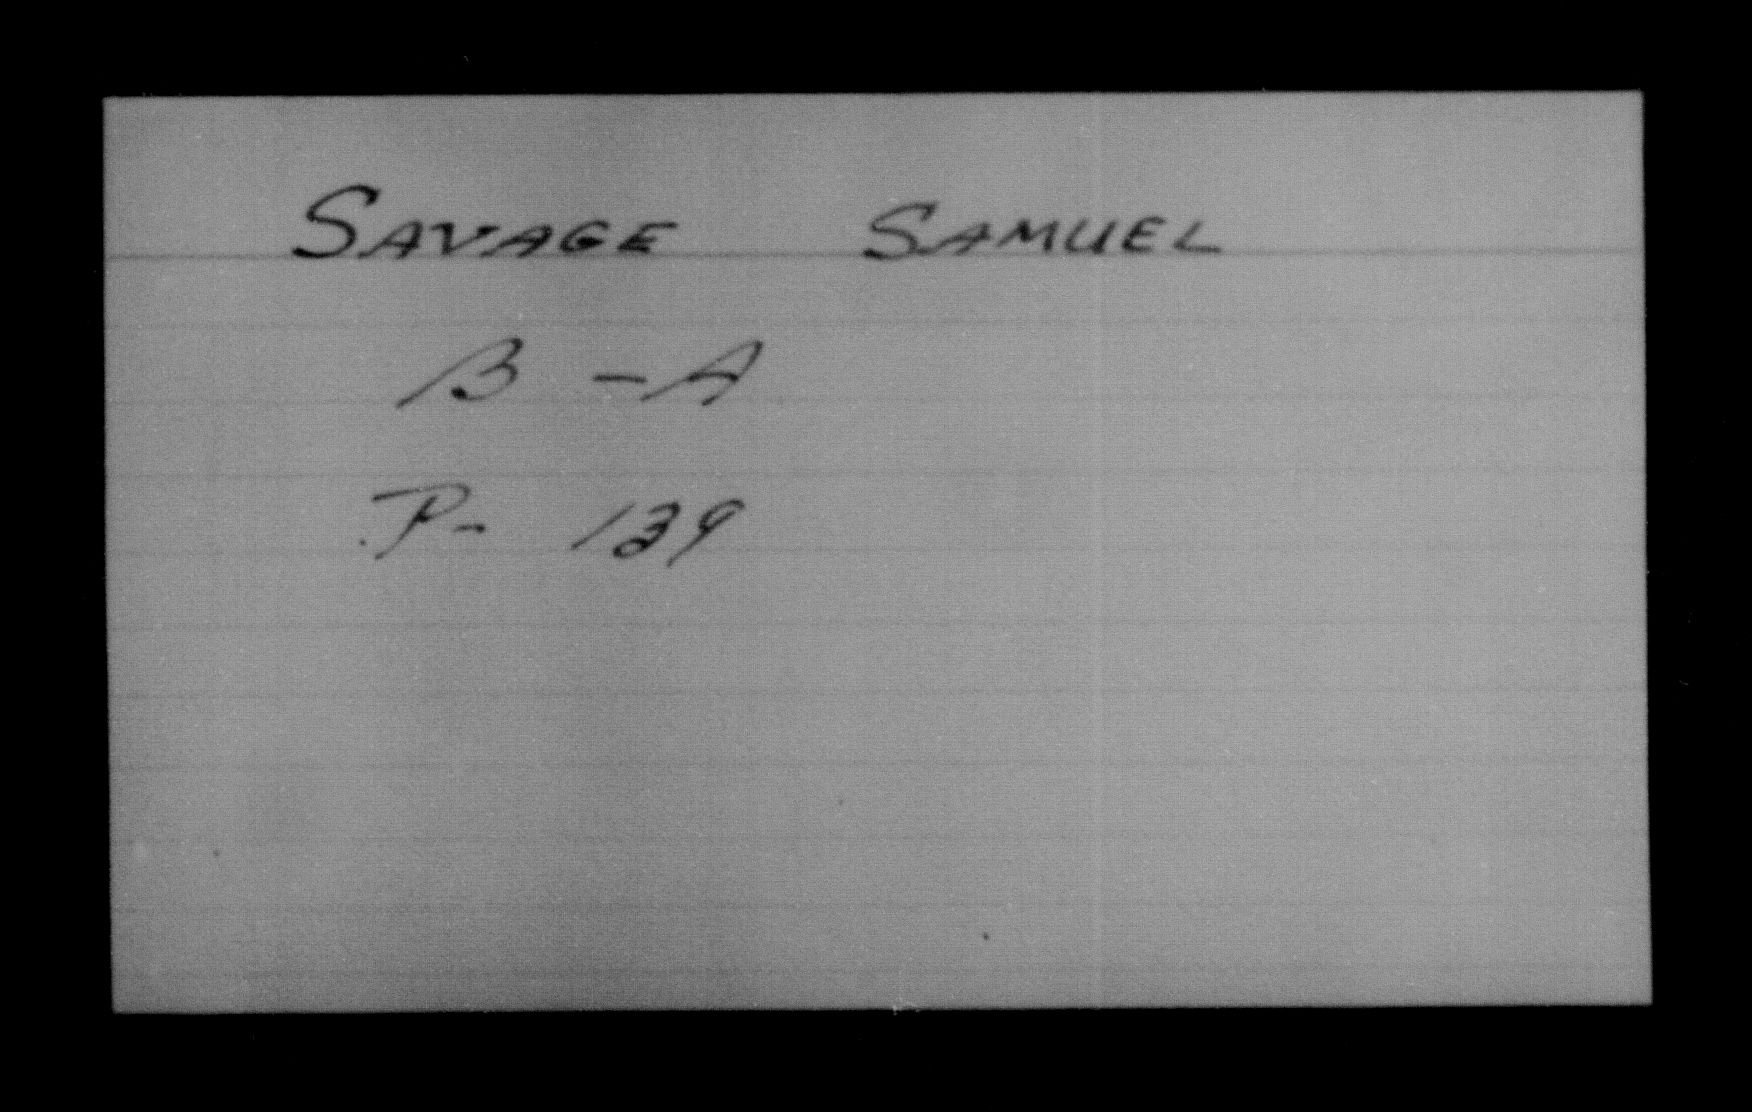 SAVAGE SAMUEL
B - A
P- 139